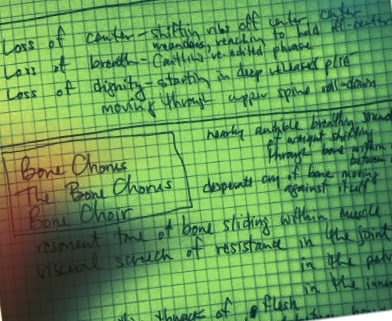 Loss of center - shifting ribs off center
meanders, reaching to hold off-center
Loss of breath - Caitlin's re-edited phrase
Loss of dignity - starting in deep released plié
moving through upper spine roll-down
nearly audible breathy sound
of weight shifting
through bone within
Bone Chorus
The Bone Chorus
Bone Choir
desperate cry of bone moving
against itself
resonant tone of bone sliding within muscle
visceral screech of resistance in the joint
in the
in the inner
of flesh